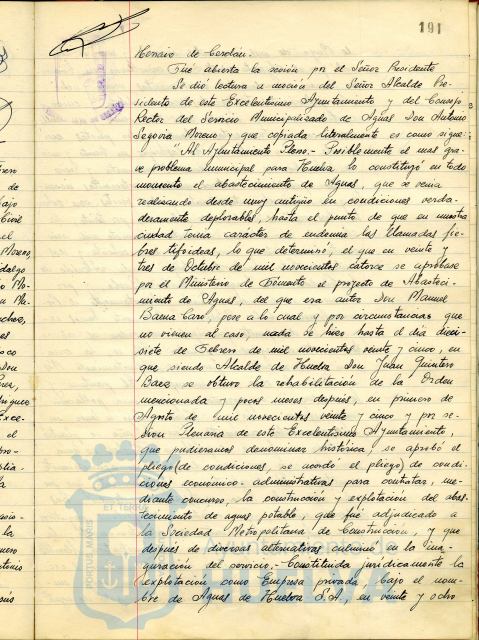 191
Horacio de Cerdán.
Fué abierta la sesión por el Señor Presidente
Se dió lectura a moción del Señor Alcalde Pre-
sidente de este Excelentísimo Ayuntamiento y del Consejo
Rector del Servicio Municipalizado de Aguas Don Antonio
Segovia Moreno y que copiada literalmente es como sigue:
"Al Ayuntamiento Pleno.- Posiblemente el mas gra-
ve problema municipal para Huelva lo constituyó en todo
momento el abastecimiento de Aguas, que se venia
realizando desde muy antiguo en condiciones verda-
deramente deplorables, hasta el punto de que en nuestra
ciudad tomó carácter de endemia las llamadas fie-
bres tifoideas, lo que determinó, el que en veinte y
tres de Octubre de mil novecientos catorce se aprobase
por el Ministerio de Fomento el proyecto de Abasteci-
miento de Aguas, del que era autor Don Manuel
Baena Caro, pese a lo cual y por circunstancias que
no vienen al caso, nada se hizo hasta el día dieci-
siete de Febrero de mil novecientos veinte y cinco, en
que siendo Alcalde de Huelva Don Juan Quintero
Baez se obtuvo la rehabilitación de la Orden
mencionada y pocos meses después, en primero de
Agosto de mil novecientos veinte y cinco y por se-
sion Plenaria de este Excelentísimo Ayuntamiento,
que pudieramos denominar histórica, se aprobó el
pliego (de condiciones, se acordó el pliego) de condi-
ciones económico-administrativas para contratar, me-
diante concurso, la construcción y explotación del abas-
tecimiento de aguas potable, que fué adjudicado a
la Sociedad Metropolitana de Construcción, y que
después de diversas alternativas culminó en la inau-
guración del servicio.- Constituida jurídicamente la
explotación como Empresa privada, bajo el nom-
bre de Aguas de Huelva S.A., en veinte y ocho